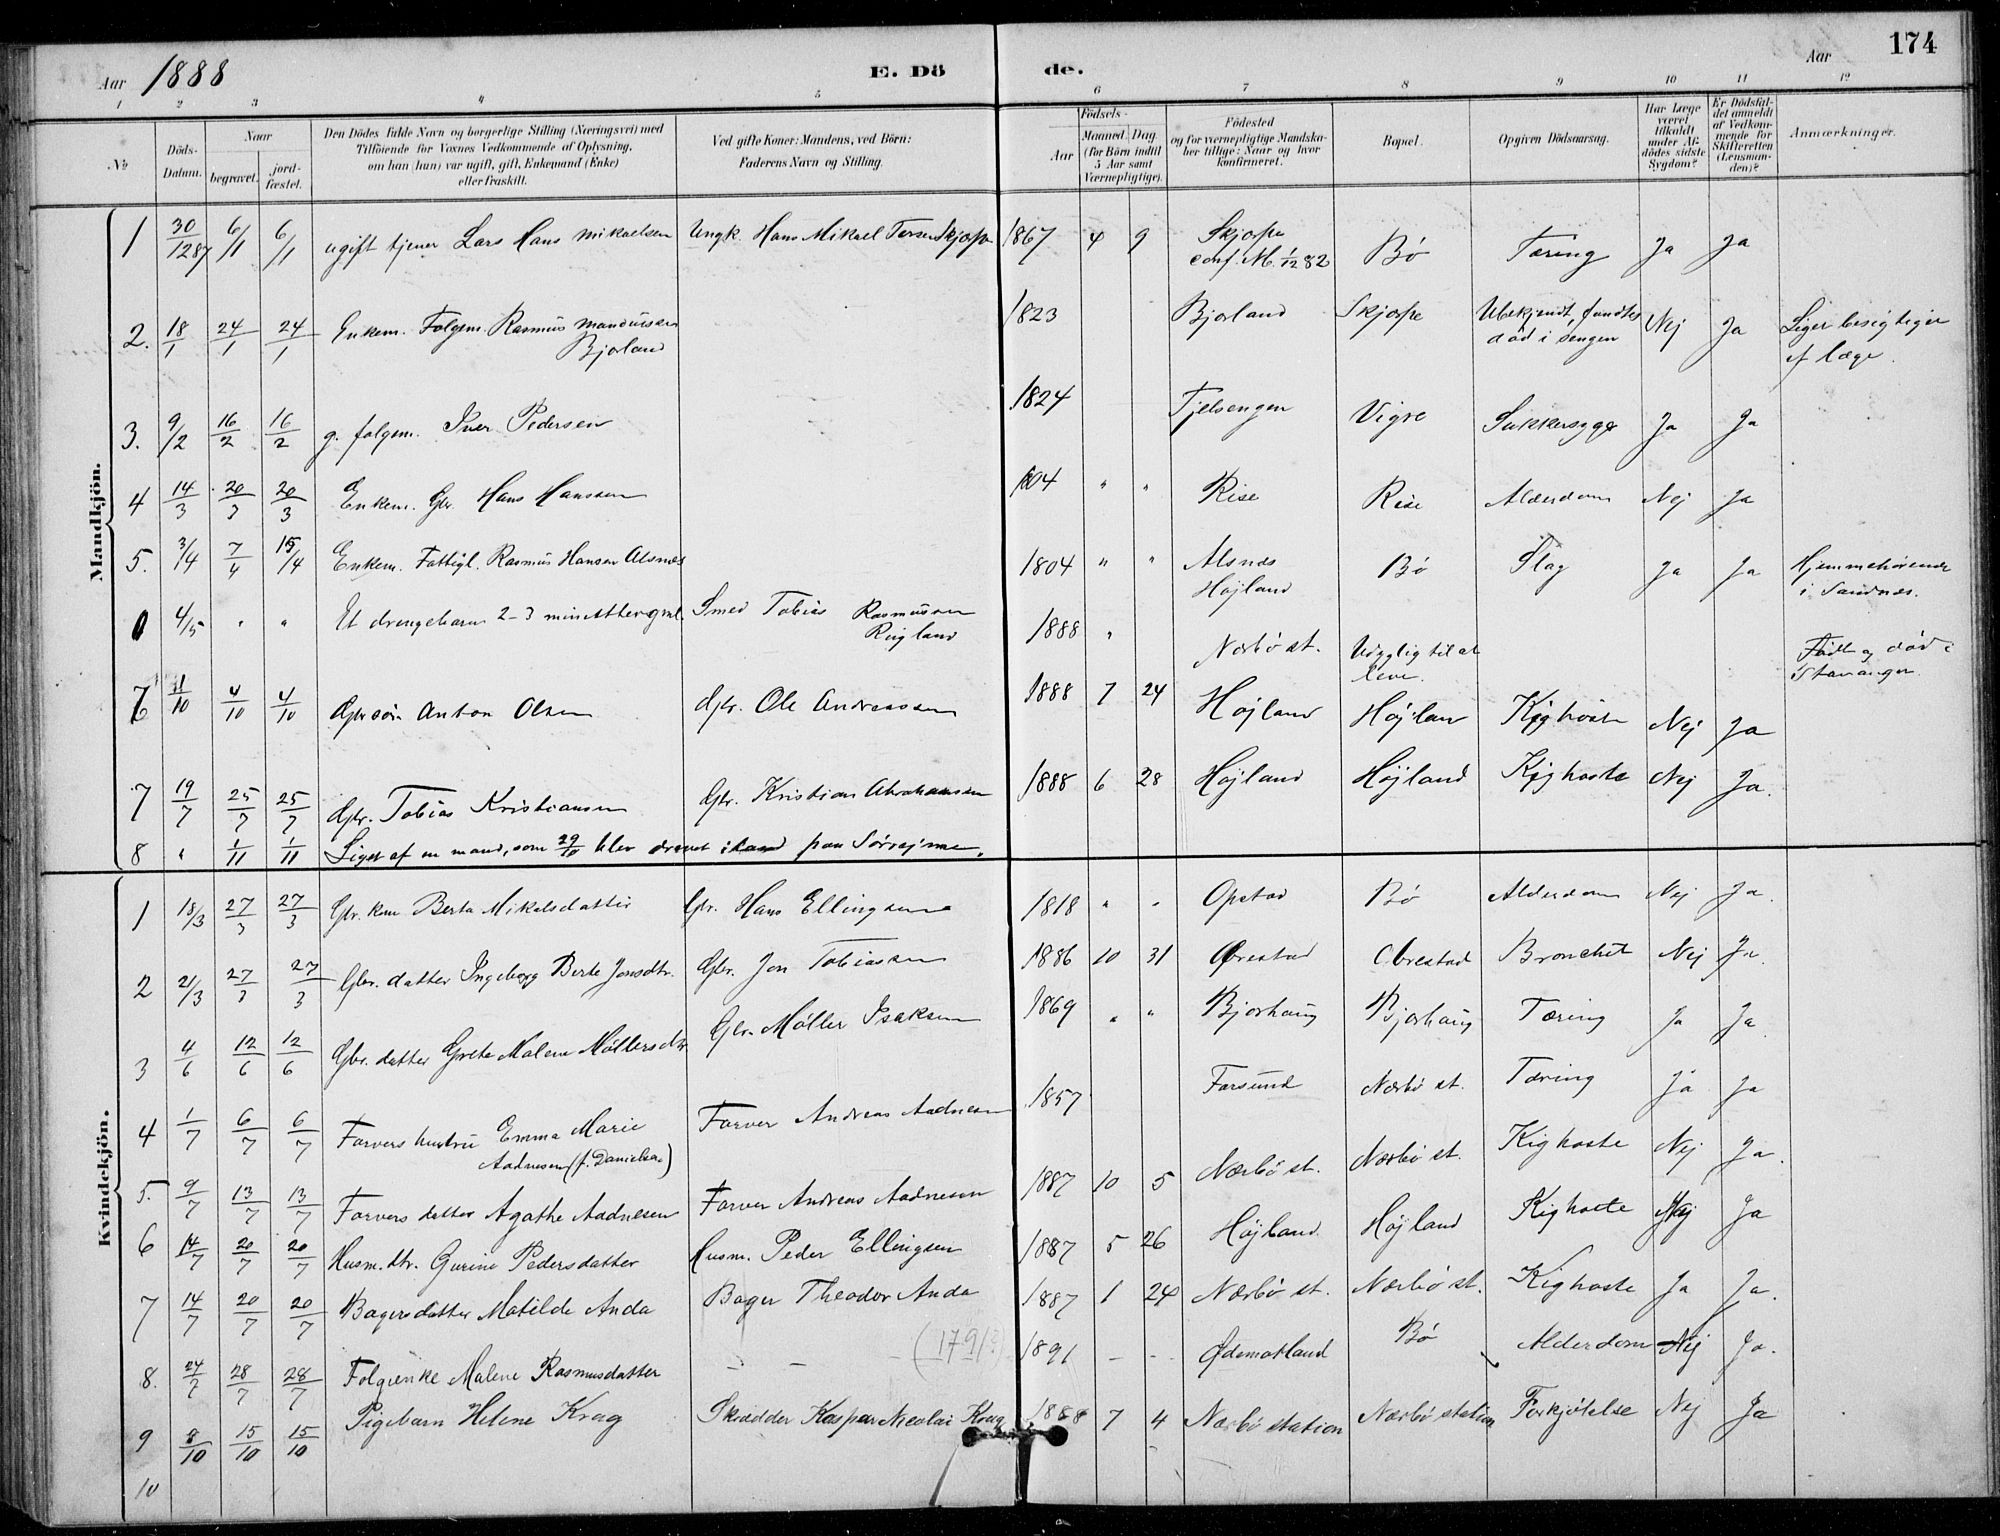 Aar 1888 E. Dö de. Aar 174
1 2 3 4 5 6 7 8 9 10 11 12
No Döds-Datum. Naar begravet. jordfæstet. Den Dödes fulde Navn og borgerlige Stilling (Næringsvei) med Tilföiende for Voxnes Vedkommende af Oplysning, om han (hun) var ugift, gift, Enkemand (Enke) eller fraskilt. Ved gifte Koner: Mandens, ved Börn: Faderens Navn og Stilling. Födsels- Aar Maaned. Dag. (for Börn indtil 5 Aar samt Værnepligtige). Födested og for værnepligtige Mandskaber tillige: Naar og hvor konfirmeret. Bopæl. Opgiven Dödsaarsag. Har Læge været tilkaldt under Afdödes sidste Sygdom? Er Dödsfaldet anmeldt af Vedkommende for Skifteretten (Lensmanden)? Anmærkninger.
Mandkjön.
1 30/12 87 6/1 6/1 ugift tjener Lars Hans Mikaelsen Ungk. Hans Mikael Torsen Skjærpe 1867 4 9 Skjærpe conf. M. 1/12 82 Bø Tæring Ja Ja
2. 18/1 24/1 24/1 Enkem. Folgem. Rasmus Mandiusen Bjorland 1823 Bjorland Skjærpe Ubekjendt, fundtes død i sengen Nej Ja Liget besigtiget af læge.
3. 9/2 16/2 16/2 g. folgem. Iver Pedersen 1824 Tjelsengen Vigre Sukkersyge Ja Ja
4 14/3 20/3 20/3 Enkem. Gbr. Hans Hanssen 1804 " " Rise Rise Alderdom Nej Ja
5. 3/4 7/4 15/4 Enkem. Fattigl. Rasmus Hansen Alsnes 1804 " " Alsnæs Højland Bø Slag Ja Ja Hjemmehørende i Sandnæs.
0 4/5 " " Et drengebarn 2-3 minutter gml. Smed Tobias Rasmussen Ringland 1888 " Nærbø st. Udyglig til at leve. Født og død i Stavanger
6 11/10 4/10 4/10 Gbr søn Anton Olsen Gbr. Ole Andreassen 1888 7 24 Højland Højland Kighoste Nej Ja
7 19/7 25/7 25/7 Gbr. Tobias Kristiansen Gbr. Kristian Abrahamsen 1888 6 28 Højland Højland Kighoste Nej Ja.
8 " 1/11 1/11 Liget af en mand, som 29/10 blev drevet iland paa Sørrejme.
Kvindekjön.
1 18/3 27/3 27/3 Gbr. kone Berta Mikelsdatter Gbr. Hans Ellingsen 1818 " " Opstad Bø Alderdom Nej Ja.
2 21/3 27/3 27/3 Gbr. datter Ingeborg Berte Jonsdtr. Gbr. Jon Tobiassen 1886 10 31 Obrestad Obrestad Bronchit Nej Ja.
3 4/6 12/6 12/6 Gbr. datter Grete Malene Møllersdtr Gbr. Møller Isaksen 1869 " " Bjorhaug Bjorhaug Tæring Ja Ja.
4 1/7 6/7 6/7 Farvers hustru Emma Marie Aadnesen (f. Danielsen) Farver Andreas Aadnesen 1857 Farsund Nærbø st. Tæring Ja Ja
5. 9/7 13/7 13/7 Farvers datter Agathe Aadnesen Farver Andreas Aadnesen 1887 10 5 Nærbø st. Nærbø st. Kighoste Nej Ja.
6 14/7 20/7 20/7 Husm. dtr. Gurine Pedersdatter Husm. Peder Ellingsen 1887 5 26 Højland Højland Kighoste Nej Ja
7 14/7 20/7 20/7 Bagers datter Matilde Anda Bager Theodor Anda 1887 1 24 Nærbø st. Nærbø st. Kighoste Ja Ja.
8. 24/7 28/7 28/7 Folgienke Malene Rasmusdatter - - - (1791?) 1891 - - Ødemotland Bø Alderdom Nej Ja.
9 8/10 15/10 15/10 Pigebarn Helene Krag Skrædder Kaspar Nicolai Krag 1888 7 4 Nærbø station Nærbø station Forkjølelse Nej Ja
10